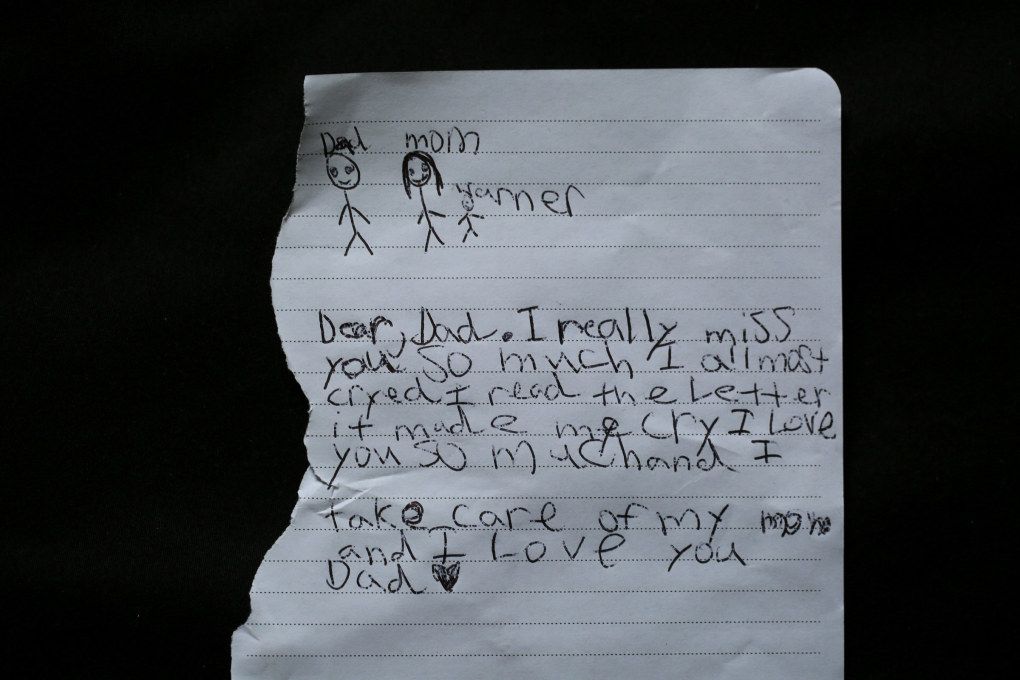 Dad mom
yarner
Dear, Dad. I really miss
you so much I allmost
cryed I read the Letter
it made me cry I Love
you so much and I
take care of my mom
and I Love you
Dad